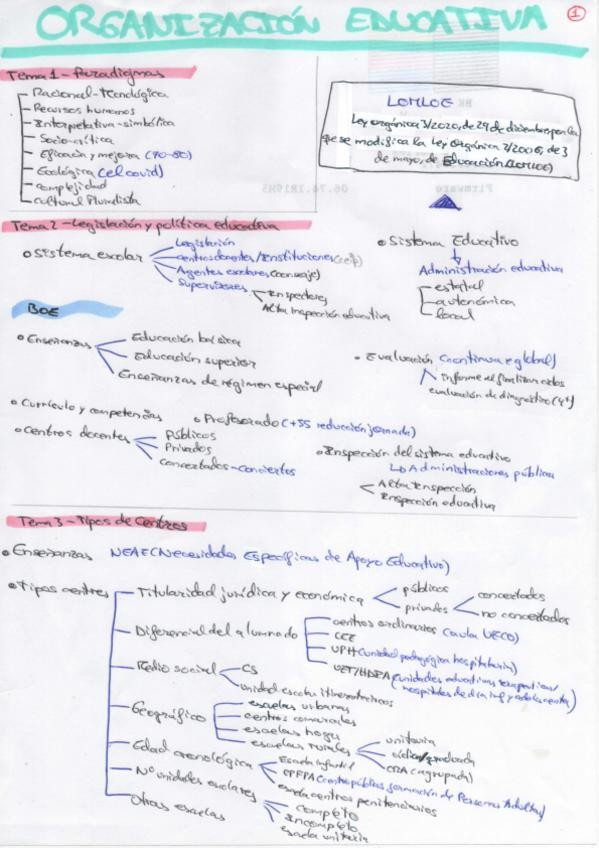 ORGANIZACIÓN EDUCATIVA
1
Tema 1 - Paradigmas
Racional-tecnológica
Recursos humanos
Interpretativa-simbólica
Socio-crítica
Eficacia y mejora (70-80)
Ecológica (el covid)
Complejidad
Cultural Pluralista
LOMLOE
Ley orgánica 3/2020, de 29 de diciembre por la
que se modifica la Ley Orgánica 2/2006, de 3
de mayo, de Educación (LOMLOE)
Tema 2 - Legislación y política educativa
Sistema escolar
Legislación
centros docentes/Instituciones
Agentes escolares
Supervisores
Inspectores
Alta Inspección educativa
Sistema Educativo
Administración educativa
estatal
autonómica
local
BOE
Enseñanzas
Educación básica
Educación superior
Enseñanzas de régimen especial
Evaluación (continua y global)
informe al finalizar ciclos
evaluación de diagnóstico (4º)
Currículo y competencias
Profesorado (+55 reducción jornada)
Centros docentes
Públicos
Privados
Concertados - Conciertos
Inspección del sistema educativo
Administraciones públicas
Alta Inspección
Inspección educativa
Tema 3 - Tipos de Centros
Enseñanzas NEAE (Necesidades Específicas de Apoyo Educativo)
Tipos centres
Titularidad jurídica y económica
públicos
privados
concertados
no concertados
Diferencial del alumnado
centros ordinarios (aula UECO)
CEE
UPH (unidad pedagógica hospitalaria)
UET/HDIA (unidades educativas terapeuticas/
hospitales de día inf y adolescente)
Medio social
CS
unidad escolar itinerante circos
Geográfico
escuelas urbanas
centros comarcales
escuelas hogar
escuelas rurales
unitaria
cíclica/graduada
CRA (agrupada)
Edad cronológica
Escuela infantil
CPFPA (centro público formación de Personas Adultas)
escuela centros penitenciarios
Nº unidades escolares
Completo
Incompleto
escuela unitaria
Otras escuelas